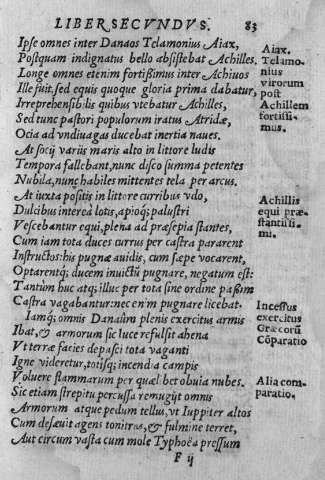 LIBER SECVNDVS. 83
Ipse omnes inter Danaos Telamonius Aiax,
Postquam indignatus bello absistebat Achilles,
Longe omnes etenim fortißimus inter Achiuos
Ille fuit. sed equis quoque gloria prima dabatur,
Irreprehensibilis quibus vtebatur Achilles,
Sed tunc pastori populorum iratus Atridæ,
Ocia ad vndiuagas ducebat inertia naues.
At socij variis maris alto in littore ludis
Tempora fallebant, nunc disco summa petentes
Nubila, nunc habiles mittentes tela per arcus.
At iuxta positis in littore curribus vdo,
Dulcibus interea lotis, apioq; palustri
Vescebantur equi, plena ad præsepia stantes,
Cum iam tota duces currus per castra pararent
Instructos: his pugnæ auidis, cum sæpe vocarent,
Optarentq; ducem inuictũ pugnare, negatum est:
Tantùm huc atq; illuc per tota sine ordine paßim
Castra vagabantur: nec enim pugnare licebat.
Iamq; omnis Danaũm plenis exercitus armis
Ibat, & armorum sic luce refulsit ahena
Vt terræ facies depasci tota vaganti
Igne videretur, totisq; incendia campis
Voluere flammarum per quæ betobuia nubes.
Sic etiam strepitu percussa remugijt omnis
Armorum atque pedum tellus, vt Iuppiter altos
Cum desæuit agens tonitrus, & fulmine terret,
Aut circum vasta cum mole Typhoëa pressum
F ij
Aiax.
Telamo-
nius
virorum
post
Achillem
fortissi-
mus.
Achillis
equi præ-
stantissi-
mi.
Incessus
exercitus
Græcorũ
Cõparatio
Alia com-
paratio.